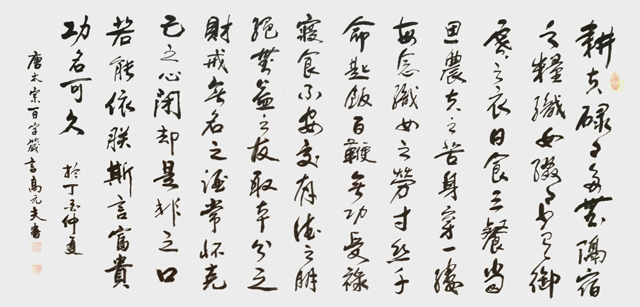 耕夫碌々多無隔宿
之糧織女少有御
寒之衣日食三餐當
思農夫之苦身穿一縷
每念織女之勞寸丝千
命匙飯百鞭無功受祿
寝食不安交有德之朋
絕無益之友取本分之
財戒無名之酒常怀克
己之心閉却是非之口
若能依朕斯言富貴
功名可久 於丁亥仲夏
唐太宗百字箴言高元夫書